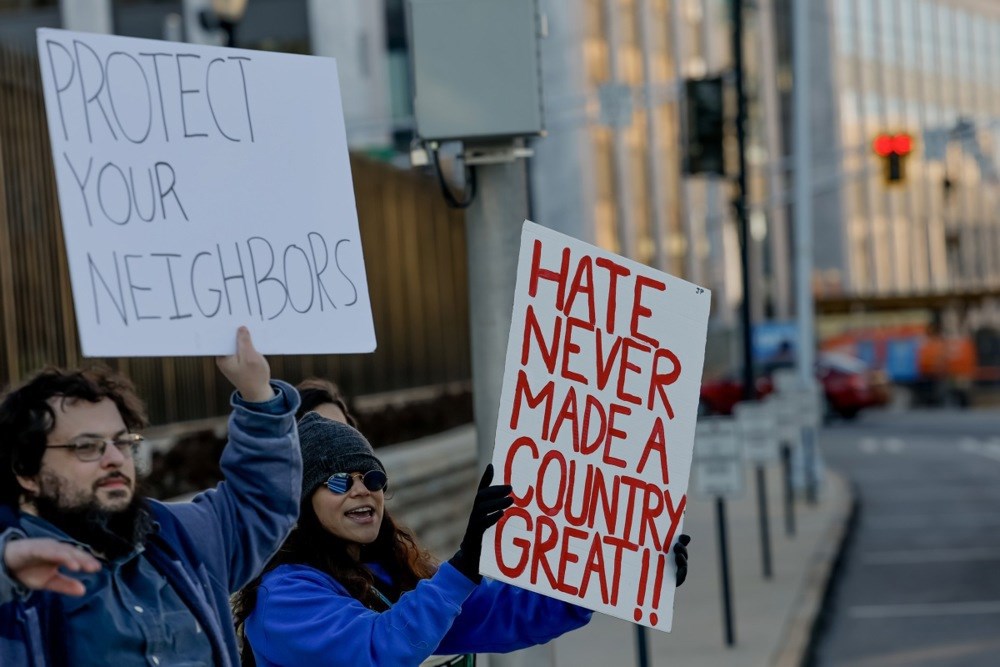 PROTECT
YOUR
NEIGHBORS
JP
HATE
NEVER
MADE A
COUNTRY
GREAT!!